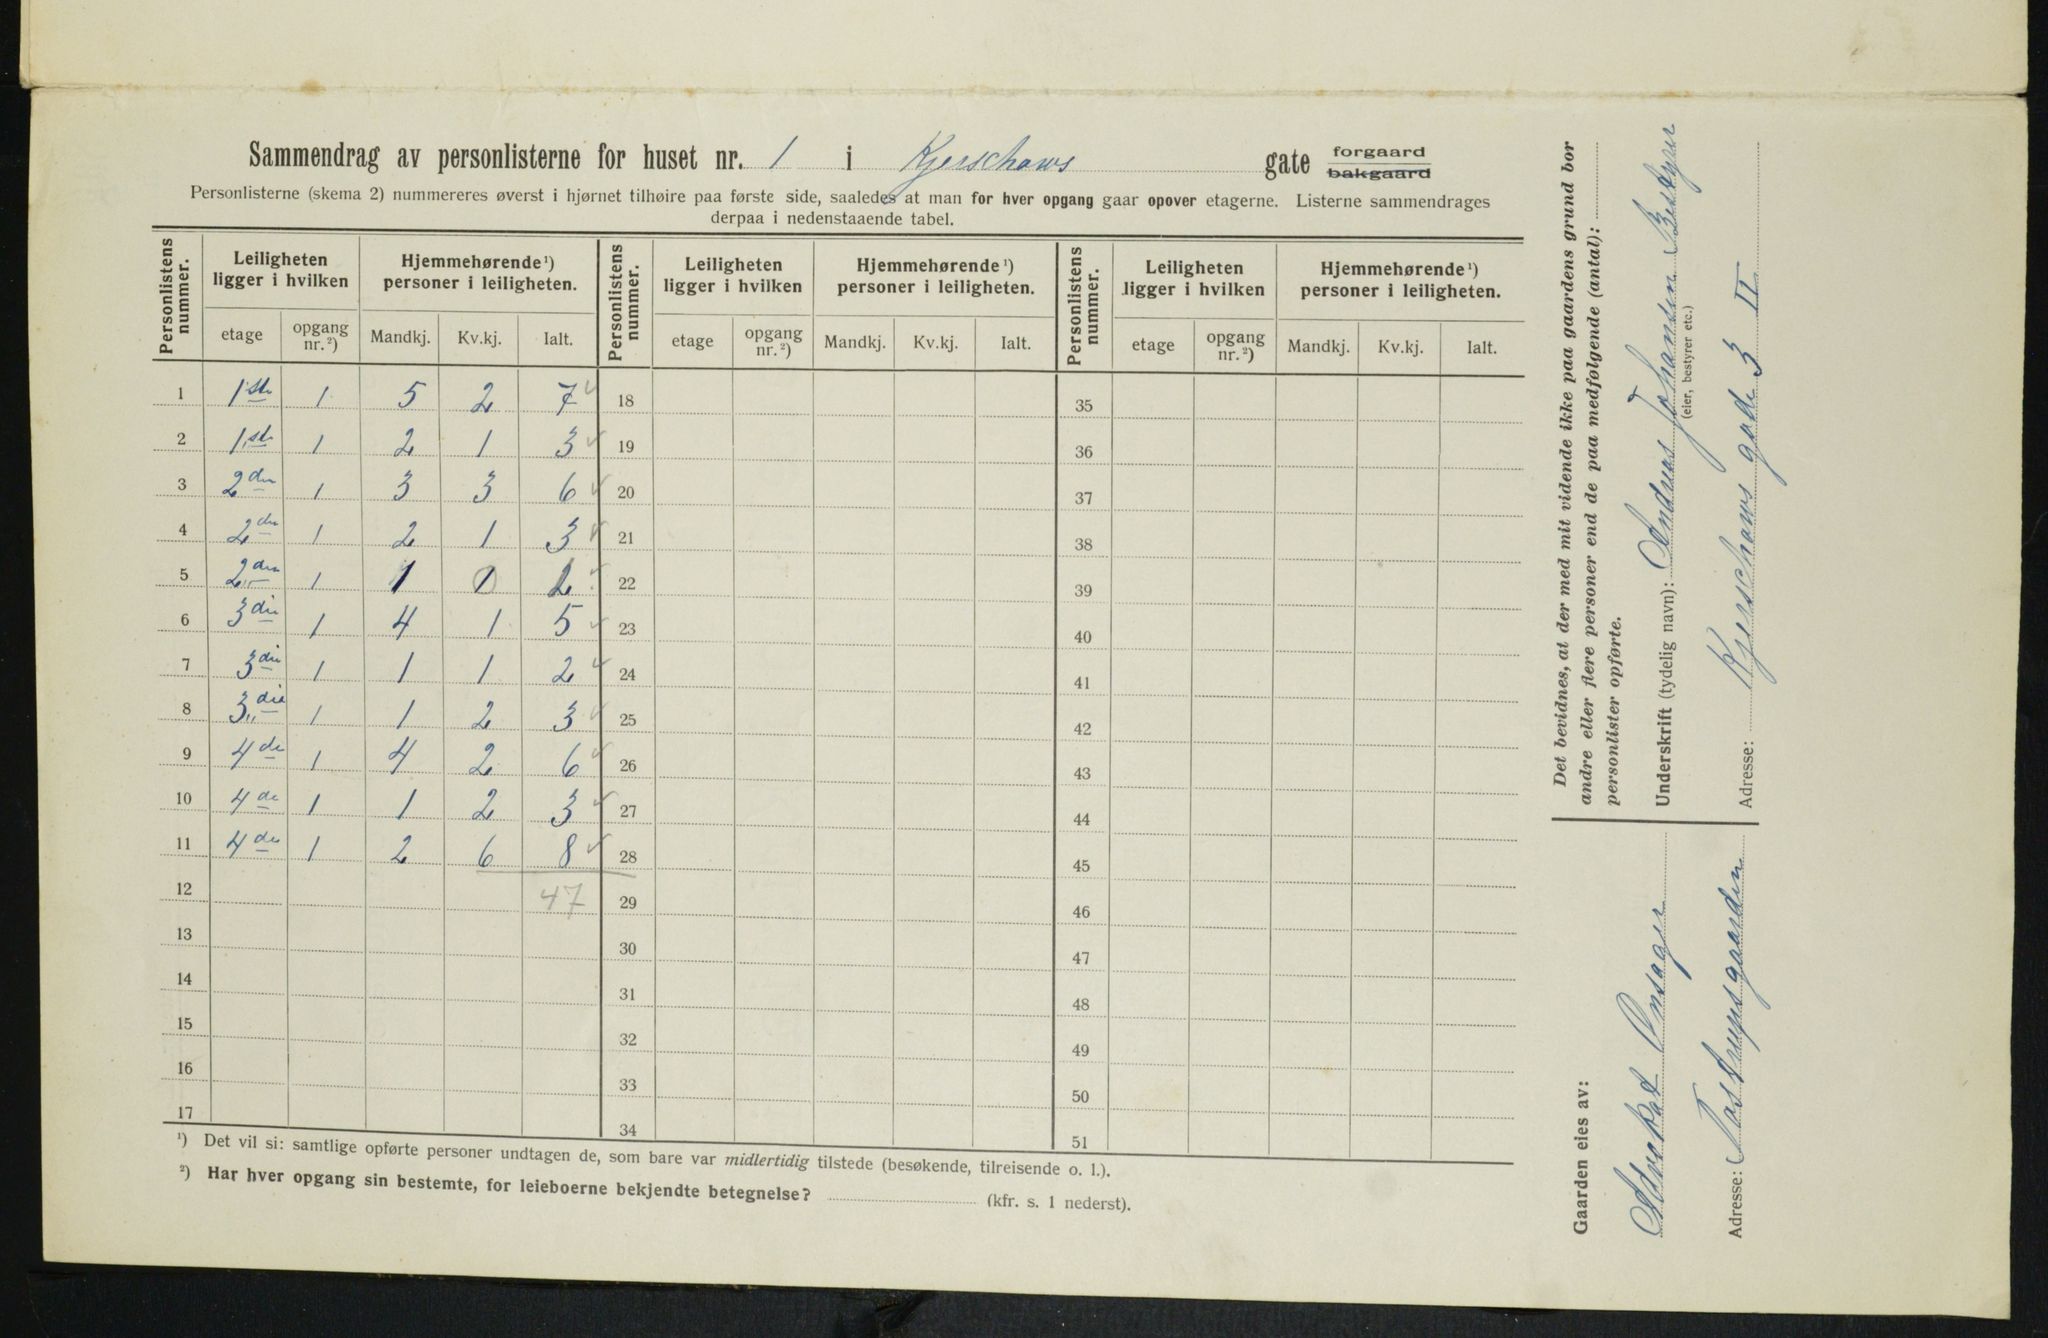 Sammendrag av personlisterne for huset nr. 1 i Kjerschows gate forgaard bakgaard
Personlisterne (skema 2) nummereres øverst i hjørnet tilhøire paa første side, saaledes at man for hver opgang gaar opover etagerne. Listerne sammendrages
derpaa i nedenstaaende tabel.
Personlistens nummer. Leiligheten ligger i hvilken Hjemmehørende ¹) personer i leiligheten. Personlistens nummer. Leiligheten ligger i hvilken Hjemmehørende ¹) personer i leiligheten. Personlistens nummer. Leiligheten ligger i hvilken Hjemmehørende ¹) personer i leiligheten.
etage opgang nr. ²) Mandkj. Kv.kj. Ialt. etage opgang nr. ²) Mandkj. Kv.kj. Ialt. etage opgang nr. ²) Mandkj. Kv.kj. Ialt.
1 1ste 1 5 2 7 18 35
2 1ste 1 2 1 3 19 36
3 2den 1 3 3 6 20 37
4 2den 1 2 1 3 21 38
5 2den 1 1 1 2 22 39
6 3die 1 4 1 5 23 40
7 3die 1 1 1 2 24 41
8 3die 1 1 2 3 25 42
9 4de 1 4 2 6 26 43
10 4de 1 1 2 3 27 44
11 4de 1 2 6 8 28 45
12 47 29 46
13 30 47
14 31 48
15 32 49
16 33 50
17 34 51
¹) Det vil si: samtlige opførte personer undtagen de, som bare var midlertidig tilstede (besøkende, tilreisende o. l.).
²) Har hver opgang sin bestemte, for leieboerne bekjendte betegnelse? (kfr. s. 1 nederst).
Det bevidnes, at der med mit vidende ikke paa gaardens grund bor
andre eller flere personer end de paa medfølgende (antal):
personlister opførte.
Underskrift (tydelig navn): Andreas Johansen Bestyrer
(eier, bestyrer etc.)
Adresse: Kjerschows gade 3 II
Gaarden eies av:
Advokat Onsager
Adresse: Tostrupsgaarden